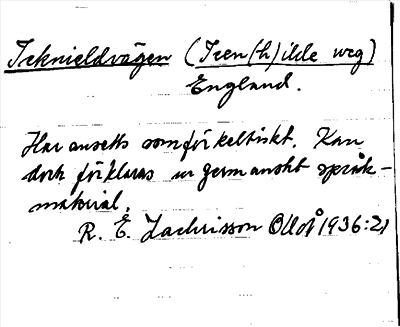 Icknieldvägen (Icen(h)ilde weg)
England.
Har ansetts som förkeltiskt. Kan
dock förklaras ur germanskt språk-
material.
R. E. Zachrisson OUoÅ 1936:21